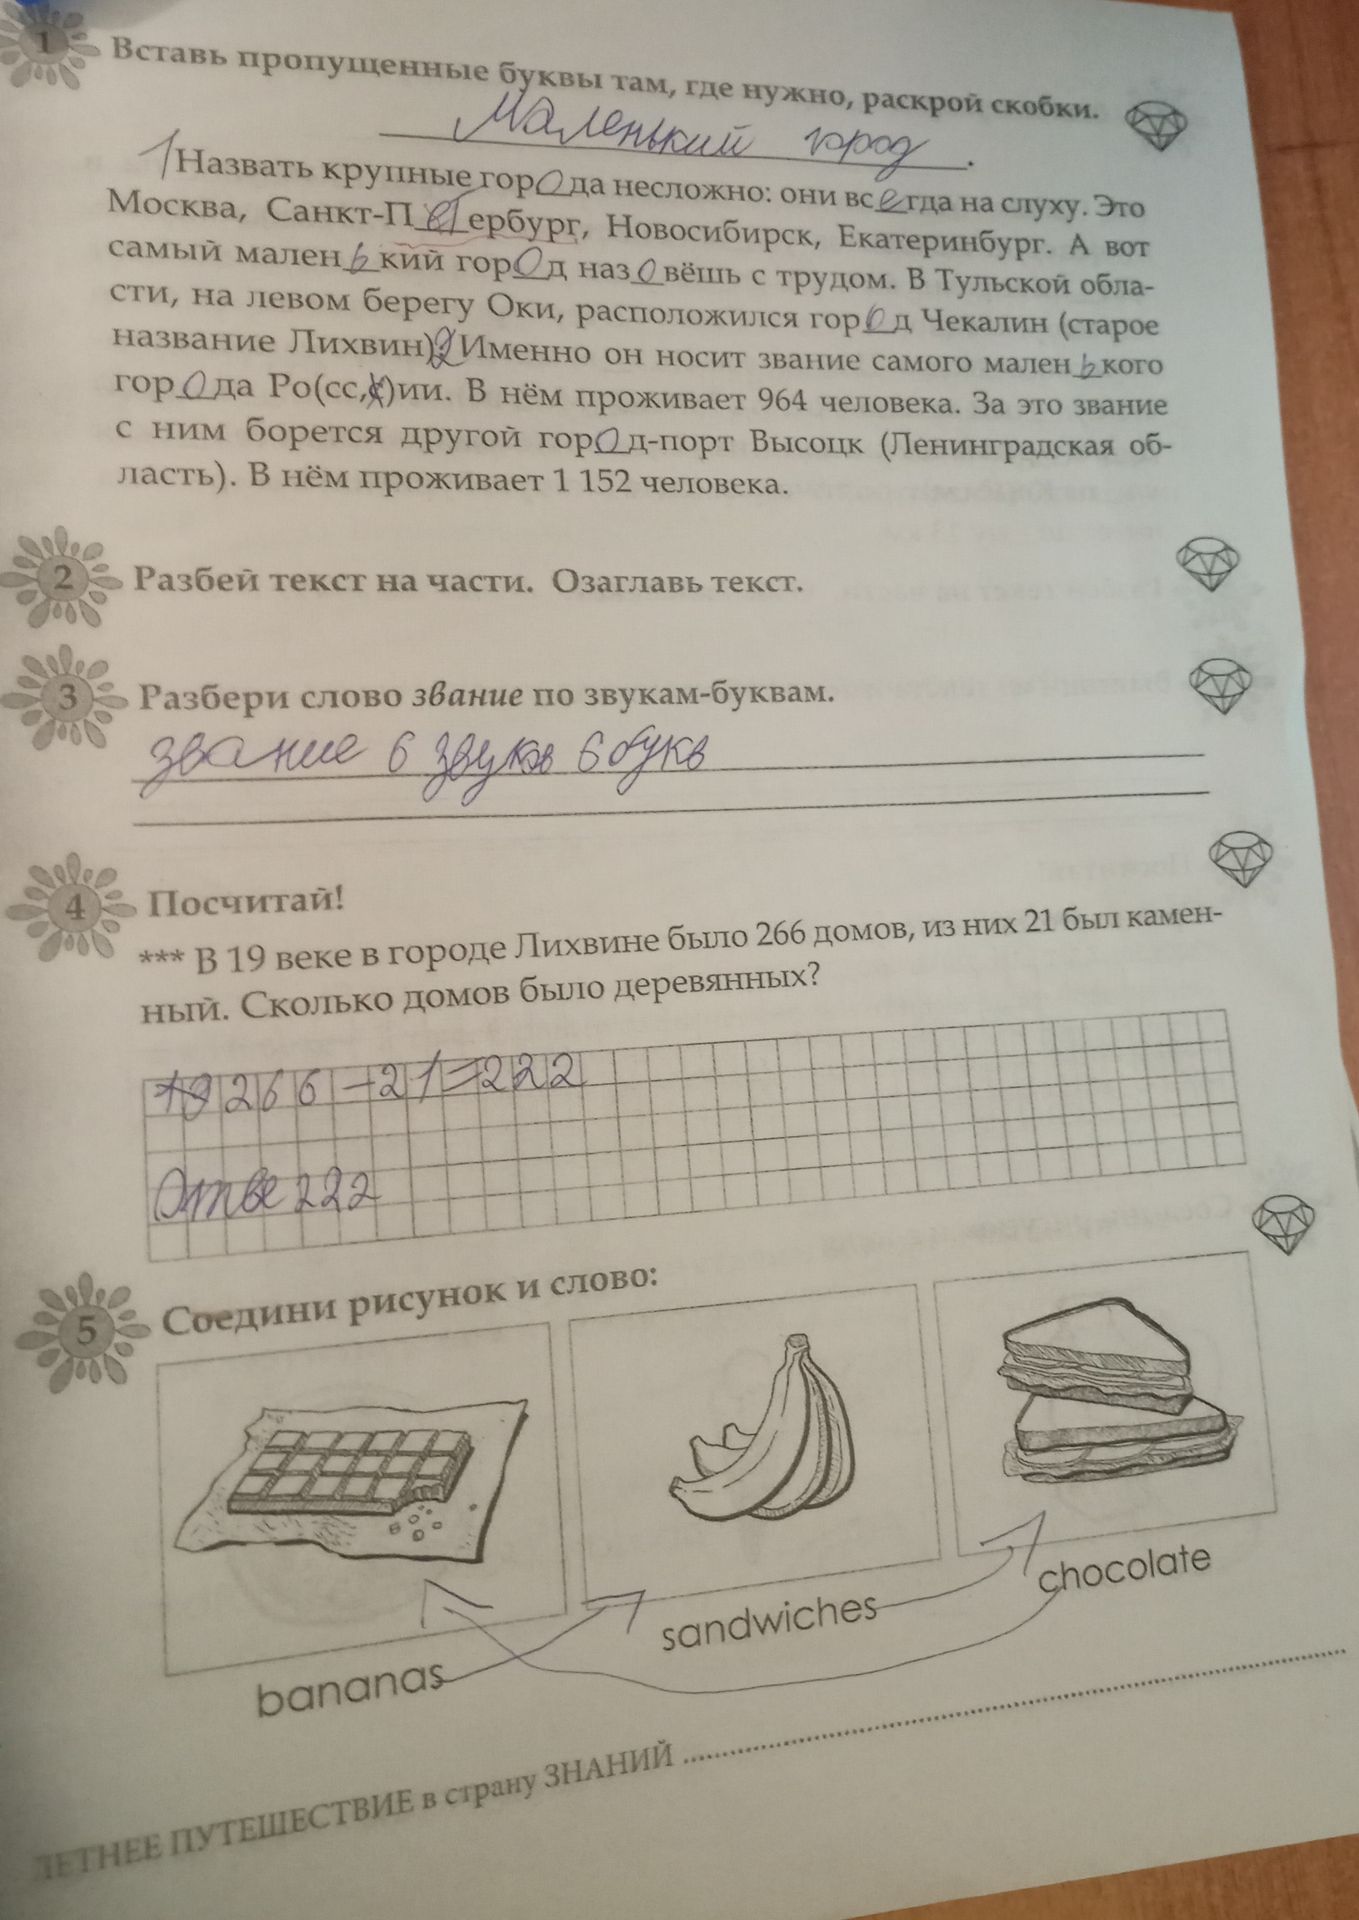 1
Вставь пропущенные буквы там, где нужно, раскрой скобки.
Маленький город.
1 Назвать крупные города несложно: они всегда на слуху. Это
Москва, Санкт-Петербург, Новосибирск, Екатеринбург. А вот
самый маленький город назовёшь с трудом. В Тульской обла-
сти, на левом берегу Оки, расположился город Чекалин (старое
название Лихвин). 2 Именно он носит звание самого маленького
города Ро(сс,с)ии. В нём проживает 964 человека. За это звание
с ним борется другой город-порт Высоцк (Ленинградская об-
ласть). В нём проживает 1 152 человека.
2
Разбей текст на части. Озаглавь текст.
3
Разбери слово звание по звукам-буквам.
звание 6 звуков 6 букв
4
Посчитай!
*** В 19 веке в городе Лихвине было 266 домов, из них 21 был камен-
ный. Сколько домов было деревянных?
19 266-21=222
Отве 222
5
Соедини рисунок и слово:
chocolate
sandwiches
bananas
ЛЕТНЕЕ ПУТЕШЕСТВИЕ в страну ЗНАНИЙ